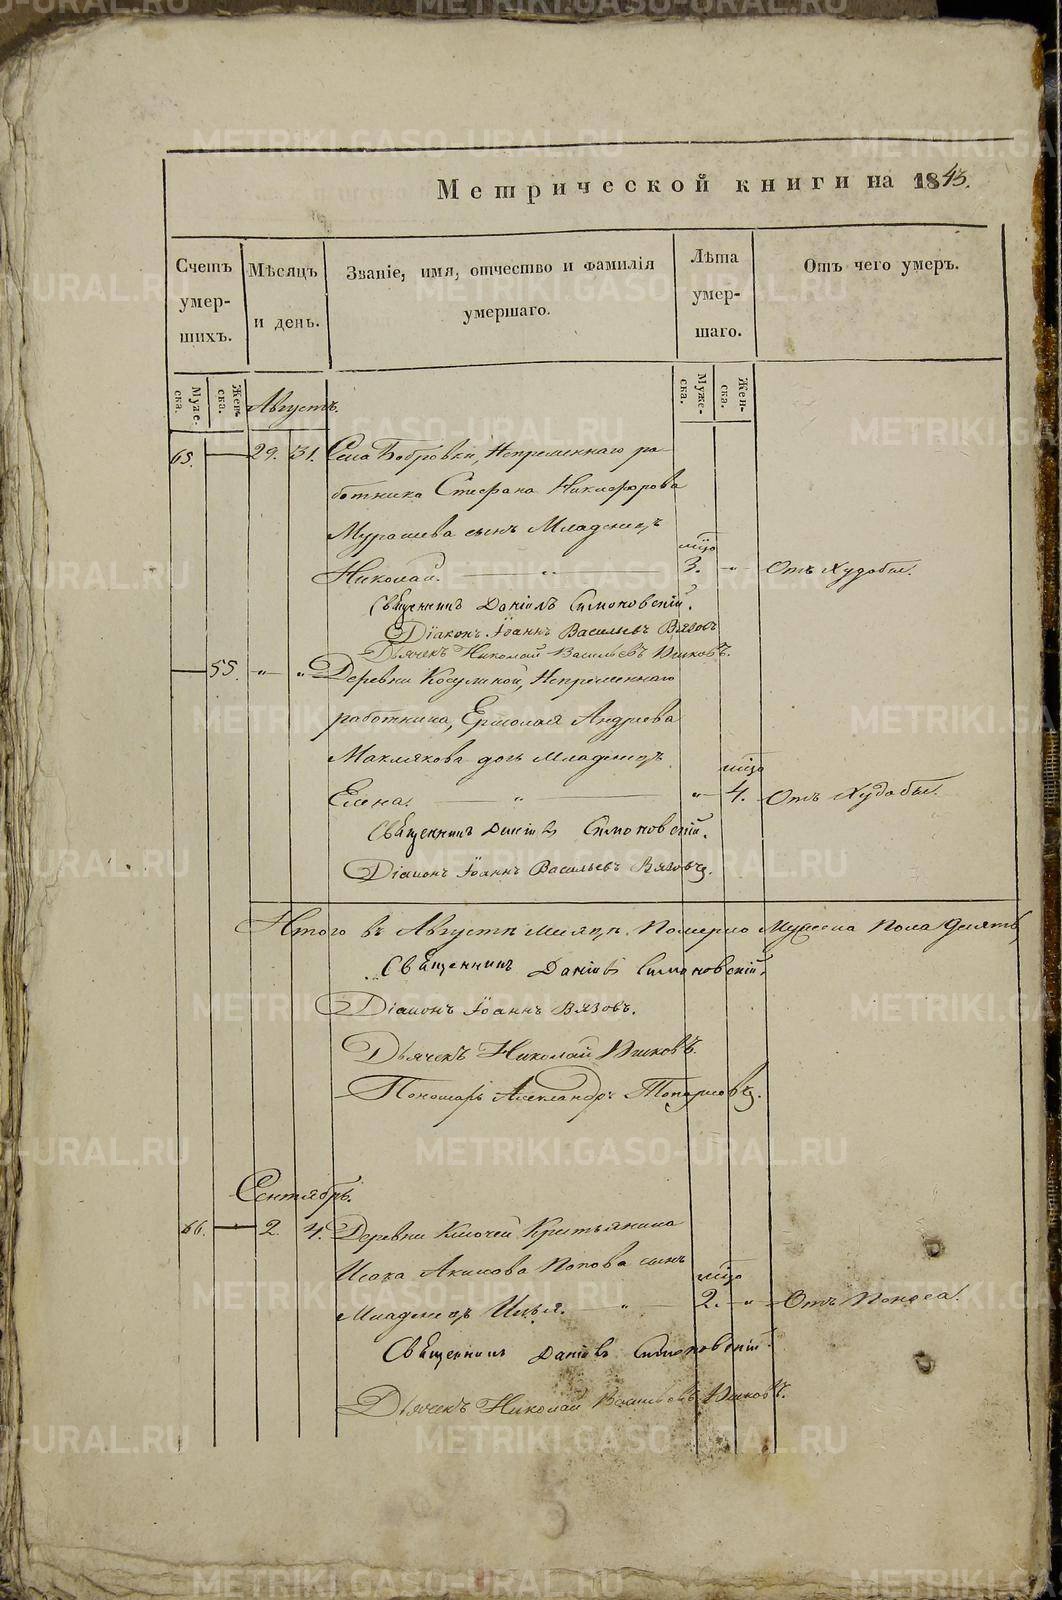 Метрической книги на 1843.
Счетъ умер- шихъ.
Мѣсяцъ и день.
Званіе, имя, отчество и фамилія умершаго.
Лѣта умер- шаго.
Отъ чего умеръ.
Муже- ска.
Жен- ска.
Муже- ска.
Жен- ска.
Августъ.
65. — 29. 31. Села Бобровки, Непременнаго ра-
ботника Стефана Никифорова
Мурашева сынъ Младенецъ
Николай. — „ — мѣцо 3. — „ — Отъ Худобы.
Священникъ Даніилъ Симоновскій.
Діаконъ Іоаннъ Васильевъ Вязовъ
Дьячекъ Николай Васильевъ
— 55. — „ — „ Деревни Косулиной, Непременнаго
работника, Ермолая Андреева
Маклякова дочь Младенецъ
Елена. — „ — мѣцо „ — 4. — Отъ Худобы.
Священникъ Даніилъ Симоновскій.
Діаконъ Іоаннъ Васильевъ Вязовъ.
Итого въ Августѣ месяцѣ Померло Мужеска Пола девять,
Священникъ Даніилъ Симоновскій.
Діаконъ Іоаннъ Вязовъ.
Дьячекъ Николай
Пономарь Александръ
Сентябрь.
66. — 2. 4. Деревни Ключей Крестьянина
Исака Акимова Попова сынъ
Младенецъ Илья. — „ — мѣцо 2. — „ — Отъ Поноса.
Священникъ Даніилъ Симоновскій.
Дьячекъ Николай Васильевъ
METRIKI.GASO-URAL.RU